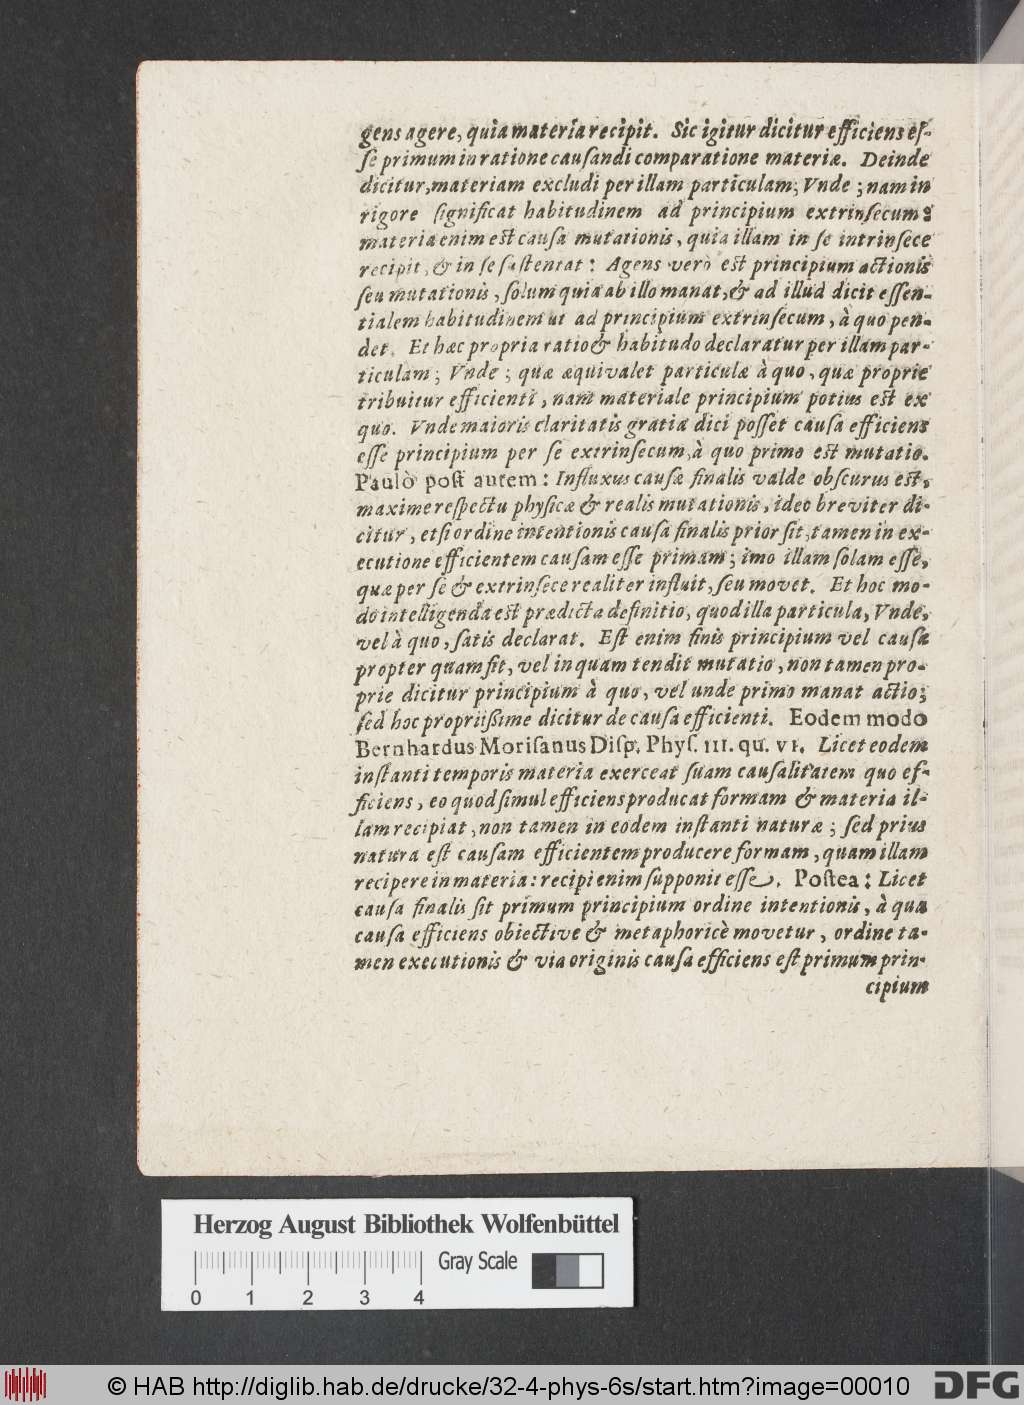 gens agere, quia materia recipit. Sic igitur dicitur efficiens eſ-
ſe primum in ratione cauſandi comparatione materiæ. Deinde
dicitur, materiam excludi per illam particulam; Vnde; nam in
rigore ſignificat habitudinem ad principium extrinſecum:
materia enim eſt cauſa mutationis, quia illam in ſe intrinſece
recipit, & in ſe ſuſtentat: Agens vero eſt principium actionis
ſeu mutationis, ſolum quia ab illo manat, & ad illud dicit eſſen-
tialem habitudinem ut ad principium extrinſecum, à quo pen-
det. Et hæc propria ratio & habitudo declaratur per illam par-
ticulam; Vnde; quæ æquivalet particulæ à quo, quæ proprie
tribuitur efficienti, nam materiale principium potius eſt ex
quo. Vnde maioris claritatis gratiâ dici poſſet cauſa efficiens
eſſe principium per ſe extrinſecum, à quo primo eſt mutatio.
Paulò poſt autem: Influxus cauſæ finalis valde obſcurus eſt,
maxime reſpectu phyſicæ & realis mutationis, ideo breviter di-
citur, etſi ordine intentionis cauſa finalis prior ſit, tamen in ex-
ecutione efficientem cauſam eſſe primam; imo illam ſolam eſſe,
quæ per ſe & extrinſece realiter influit, ſeu movet. Et hoc mo-
do intelligenda eſt prædicta definitio, quod illa particula, Vnde,
vel à quo, ſatis declarat. Eſt enim finis principium vel cauſa
propter quam fit, vel in quam tendit mutatio, non tamen pro-
prie dicitur principium à quo, vel unde primo manat actio;
ſed hoc propriißime dicitur de cauſa efficienti. Eodem modo
Bernhardus Moriſanus Diſp. Phyſ. III. qu. VI. Licet eodem
inſtanti temporis materia exerceat ſuam cauſalitatem quo ef-
ficiens, eo quod ſimul efficiens producat formam & materia il-
lam recipiat, non tamen in eodem inſtanti naturæ; ſed prius
natura eſt cauſam efficientem producere formam, quam illam
recipere in materia: recipi enim ſupponit eſſe. Poſtea: Licet
cauſa finalis ſit primum principium ordine intentionis, à qua
cauſa efficiens obiective & metaphoricè movetur, ordine ta-
men executionis & via originis cauſa efficiens eſt primum prin-
cipium
Herzog August Bibliothek Wolfenbüttel
Gray Scale
0 1 2 3 4
© HAB http://diglib.hab.de/drucke/32-4-phys-6s/start.htm?image=00010
DFG